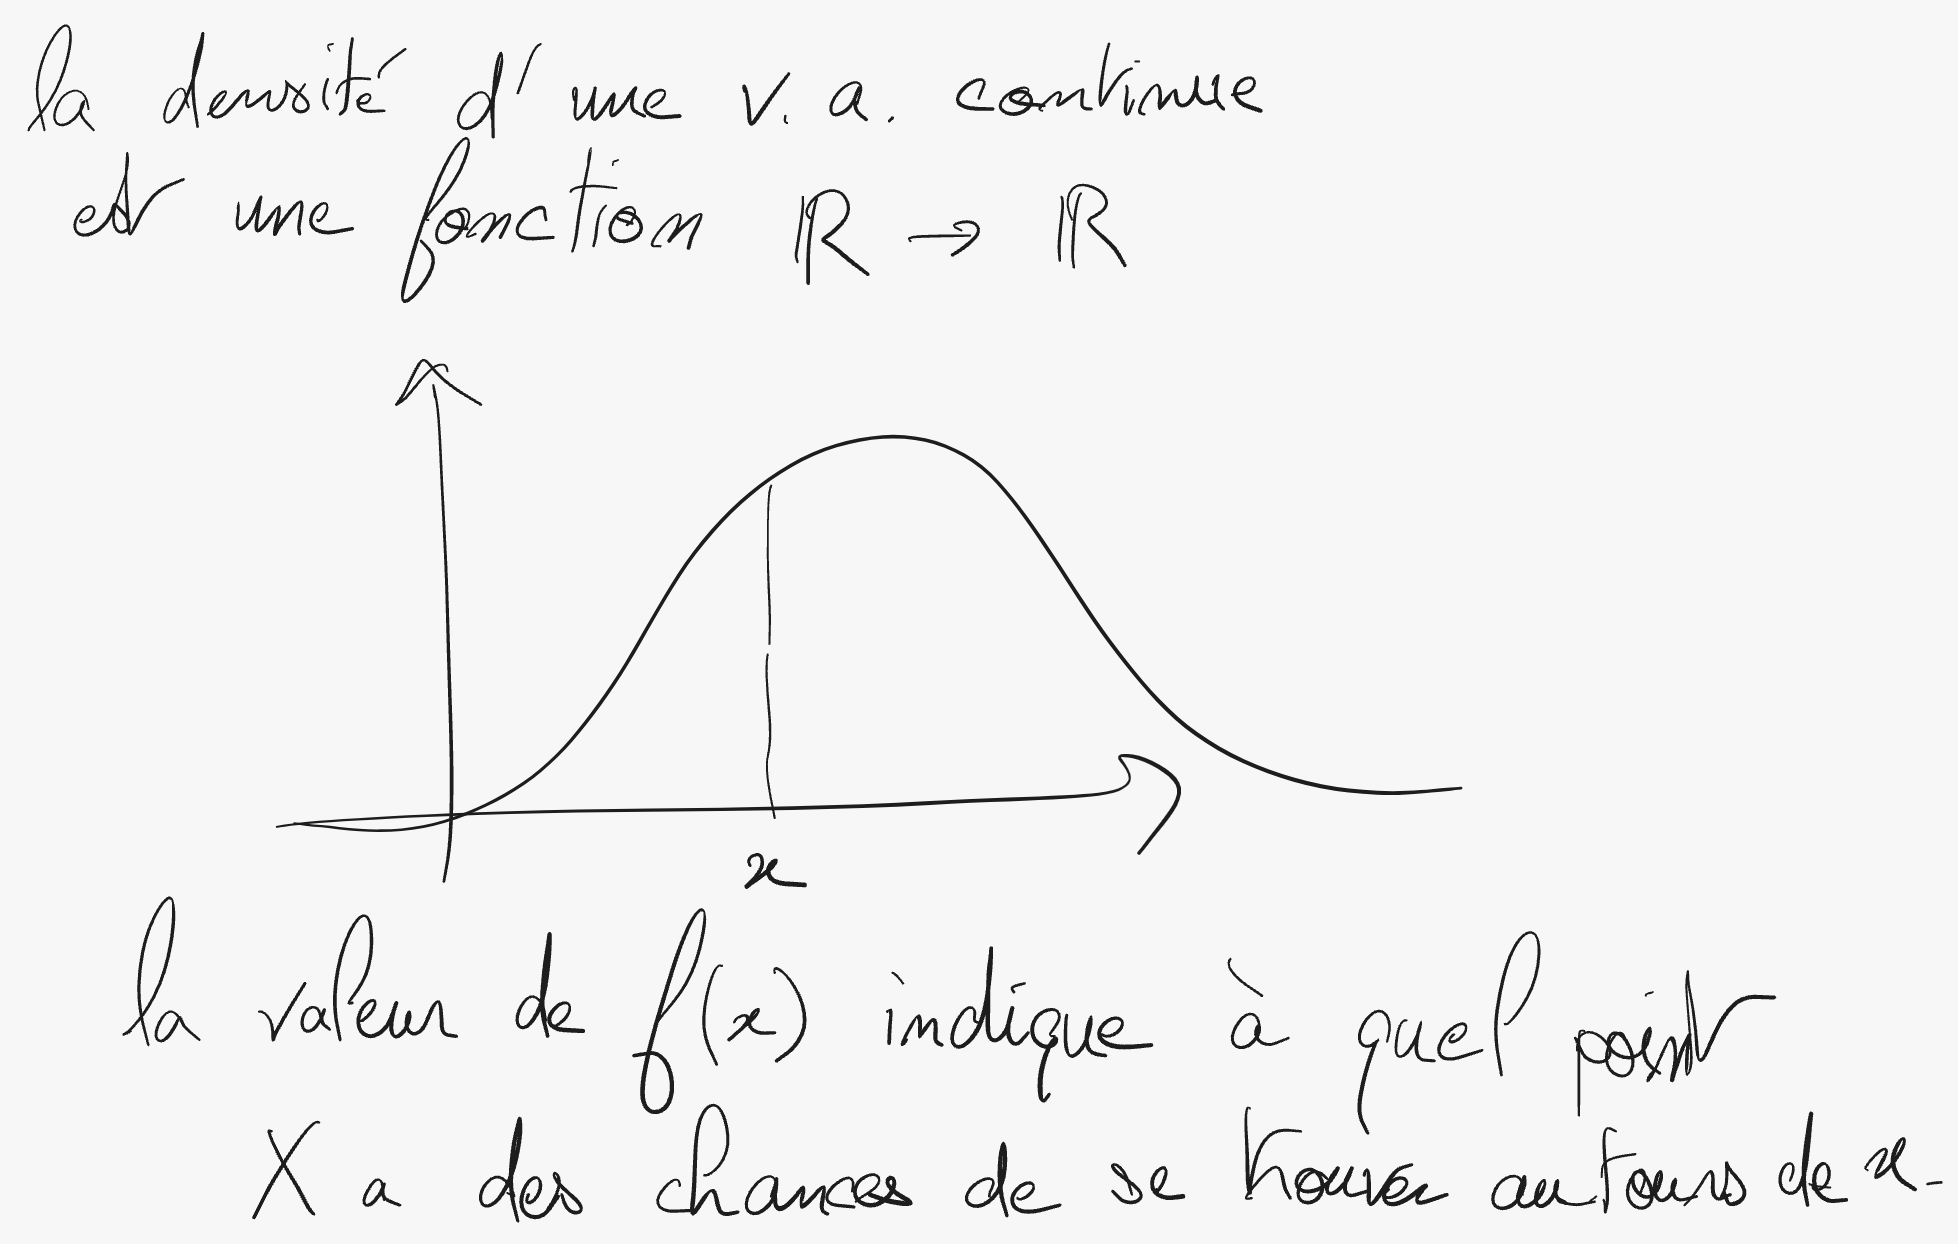 la densité d'une v.a. continue
est une fonction ℝ → ℝ
x
la valeur de f(x) indique à quel point
X a des chances de se trouver autours de x.